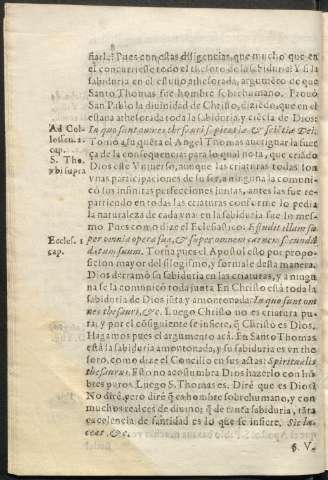 ñarla? Pues con estas diligencias, que mucho que en
el concurriesse todo el thesoro de la sabiduria? Y si la
sabiduria en el estuuo athesorada, argumẽto de que
Santo Thomas fue hombre sobrehumano. Prouò
San Pablo la diuinidad de Christo, diziẽdo, que en el
estaua athesorada toda la sabiduria, y ciẽcia de Dios:
Ad Col-
lossen. 2.
cap.
S. Tho.
vbi supra
In quo sunt omnes thesauri sapientiæ, & scientiæ Dei.
Torno assi quẽta el Angel Thomas aueriguar la fuer
ça de la consequencia: para lo qual nota, que criãdo
Dios este Vniuerso, aunque las criaturas todas son
vnas participaciones de su ser, a ninguna la comuni-
cò sus infinitas perfecciones juntas, antes las fue re-
partiendo en todas las criaturas conforme lo pedia
la naturaleza de cada vna. en la sabiduria fue lo mes-
mo. Pues como dize el Eclesiastico.
Eccles. 1
cap.
Effudit illam su
per omnia opera sua, & super omnem carnem secundũ
datum suum. Torna pues el Apostol esto por propo-
sicion mayor del silogismo, y formale desta manera.
Dios derramò su sabiduria en las criaturas, y a ningu
na se la comunicò toda junta. En Christo està toda la
sabiduria de Dios junta y amontonada: In quo sunt om
nes thesauri, &c. Luego Christo no es criatura pu-
ra; y por el cõsiguiente se infiere, q̃ Christo es Dios.
Hagamos pues el argumento acà. En Santo Thomas
està la sabiduria amontonada, y su sabiduria es vn the
soro, como dize el Concilio en sus actas: Spiritualis
thesaurus. Esto no acostumbra Dios hazerlo con hõ-
bres puros. Luego S. Thomas es. Dirè que es Dios?
No dirè, pero dirè q̃ es hombre sobrehumano, y con
muchos realces de diuino; q̃ de tanta sabiduria, tãta
excelencia de santidad es lo que se infiere. Sic lu-
ceat, &c.
§. V.